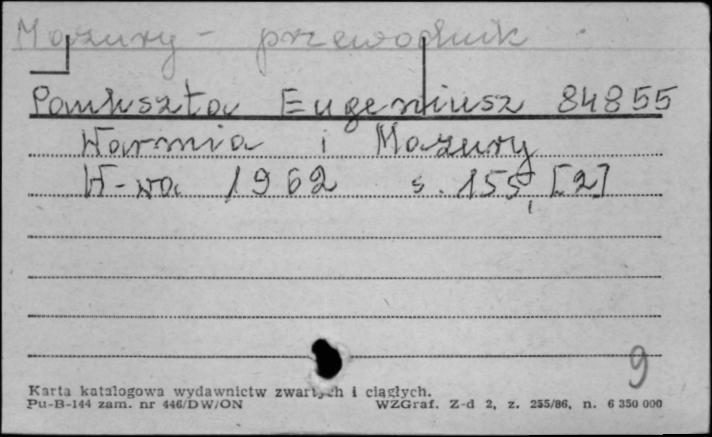 Mazury - przewodnik
Paukszta Eugeniusz 84855
Warmia i Mazury
W-wa 1962 s. 155, [2]
9
Karta katalogowa wydawnictw zwartych i ciągłych.
Pu-B-144 zam. nr 446/DW/ON WZGraf. Z-d 2, z. 255/86, n. 6 350 000